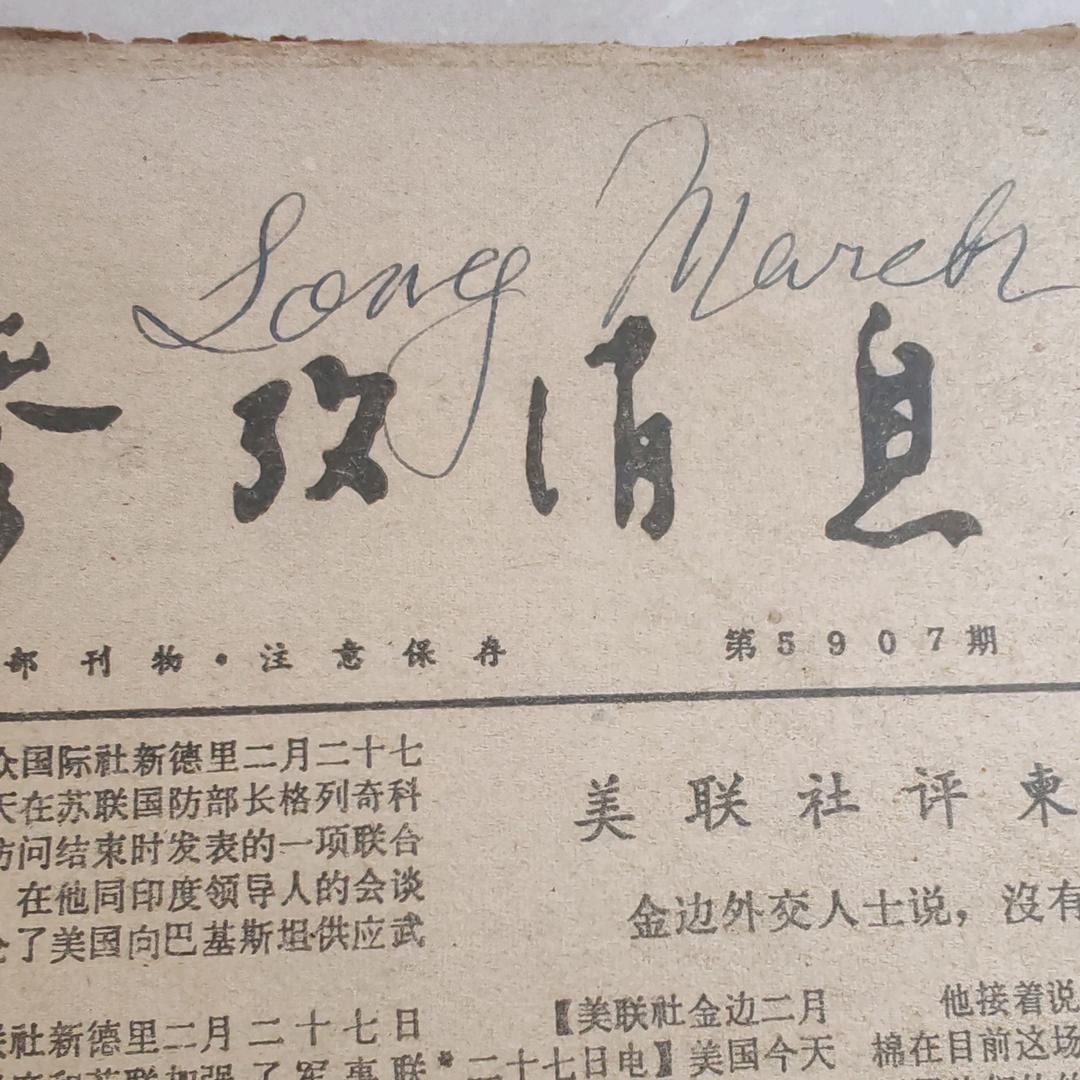 Long March
参攷消息
部刊物·注意保存
第5907期
众国际社新德里二月二十七
天在苏联国防部长格列奇科
访问结束时发表的一项联合
在他同印度领导人的会谈
论了美国向巴基斯坦供应武
联社新德里二月二十七日
度和苏联加强了军事联
美联社评柬
金边外交人士说，沒有
【美联社金边二月
二十七日电】美国今天
他接着说
棉在目前这场